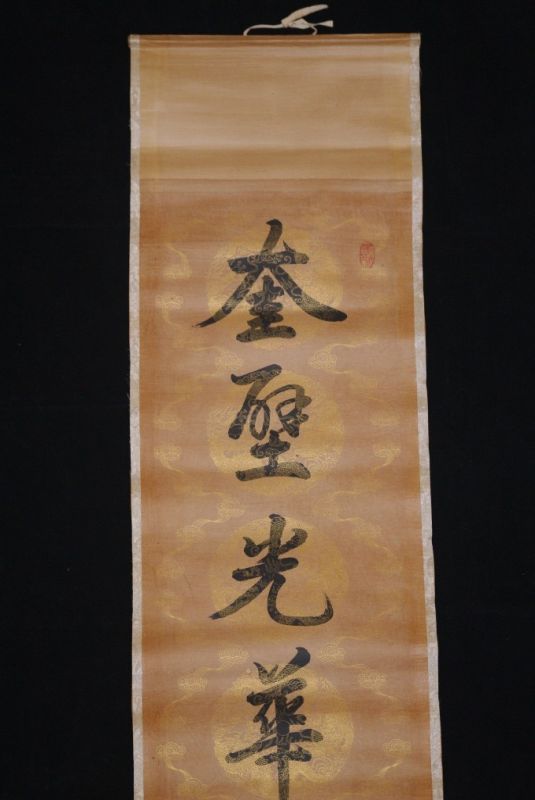 奎壁光華